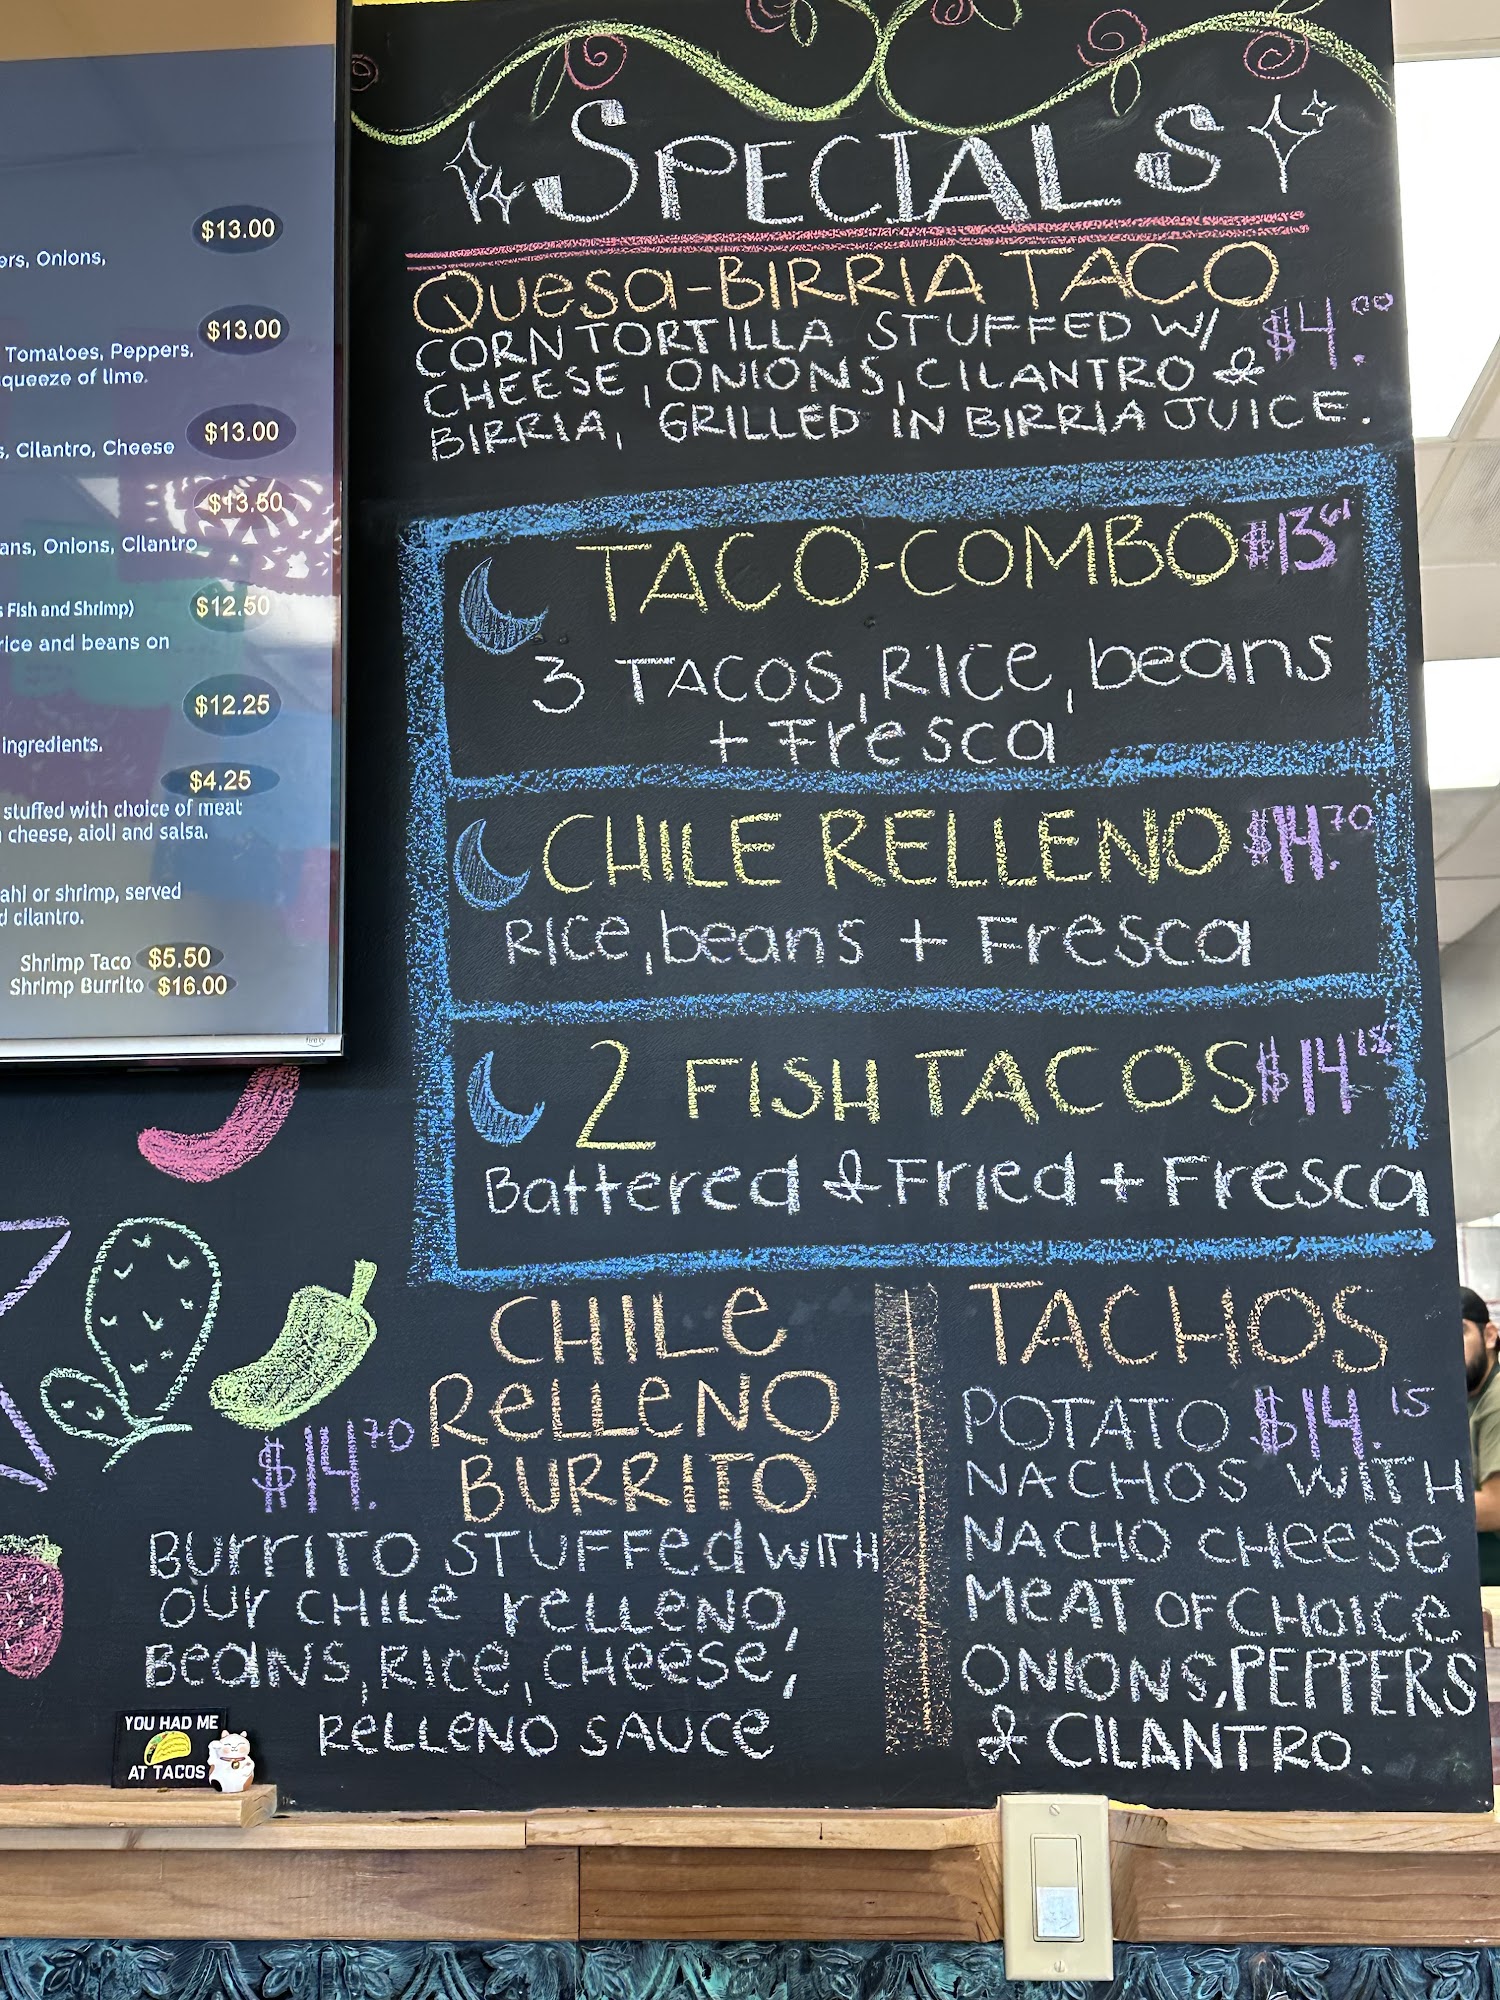 $13.00
ers, Onions,
$13.00
Tomatoes, Peppers,
squeeze of lime.
$13.00
s, Cilantro, Cheese
$13.50
ans, Onions, Cilantro
s Fish and Shrimp)
$12.50
rice and beans on
$12.25
ingredients.
$4.25
stuffed with choice of meat
cheese, aioli and salsa.
ahi or shrimp, served
d cilantro.
Shrimp Taco $5.50
Shrimp Burrito $16.00
SPECIALS
QUesa-BIRRIA TACO
CORN TORTILLA STUFFED W/ $4.00
CHEESE, ONIONS, CILANTRO &
BIRRIA, GRILLED IN BIRRIA JUICE.
TACO-COMBO $13.61
3 TACOS, RICe, beans
+ Fresca
CHILE RELLENO $14.70
RIce, beans + Fresca
2 FISH TACOS $14.15
Battered & Fried + Fresca
CHILe
ReLLeNO
$14.70
BURRITO
BUrrITO STUFFed WITH
OUr CHILe reLLeNO,
BeaNS, RICe, CHeese,
ReLLeNO SAUCe
TACHOS
POTATO $14.15
NACHOS WITH
NACHO CHeese
MeAT OF CHOICe
ONIONS, PEPPERS
& CILANTRO.
YOU HAD ME
AT TACOS